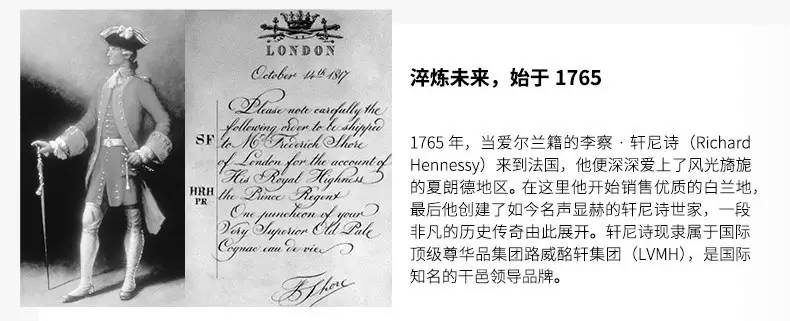 LONDON
October 14th 1817
Please note carefully the
following order to be shipped
SF
to Mr Frederick Shore
of London for the account of
His Royal Highness
HRH
PR
the Prince Regent
One puncheon of your
Very Superior Old Pale
Cognac eau de vie
Shore
淬炼未来，始于 1765
1765 年，当爱尔兰籍的李察 · 轩尼诗（Richard
Hennessy）来到法国，他便深深爱上了风光旖旎
的夏朗德地区。在这里他开始销售优质的白兰地，
最后他创建了如今名声显赫的轩尼诗世家，一段
非凡的历史传奇由此展开。轩尼诗现隶属于国际
顶级尊华品集团路威酩轩集团（LVMH），是国际
知名的干邑领导品牌。